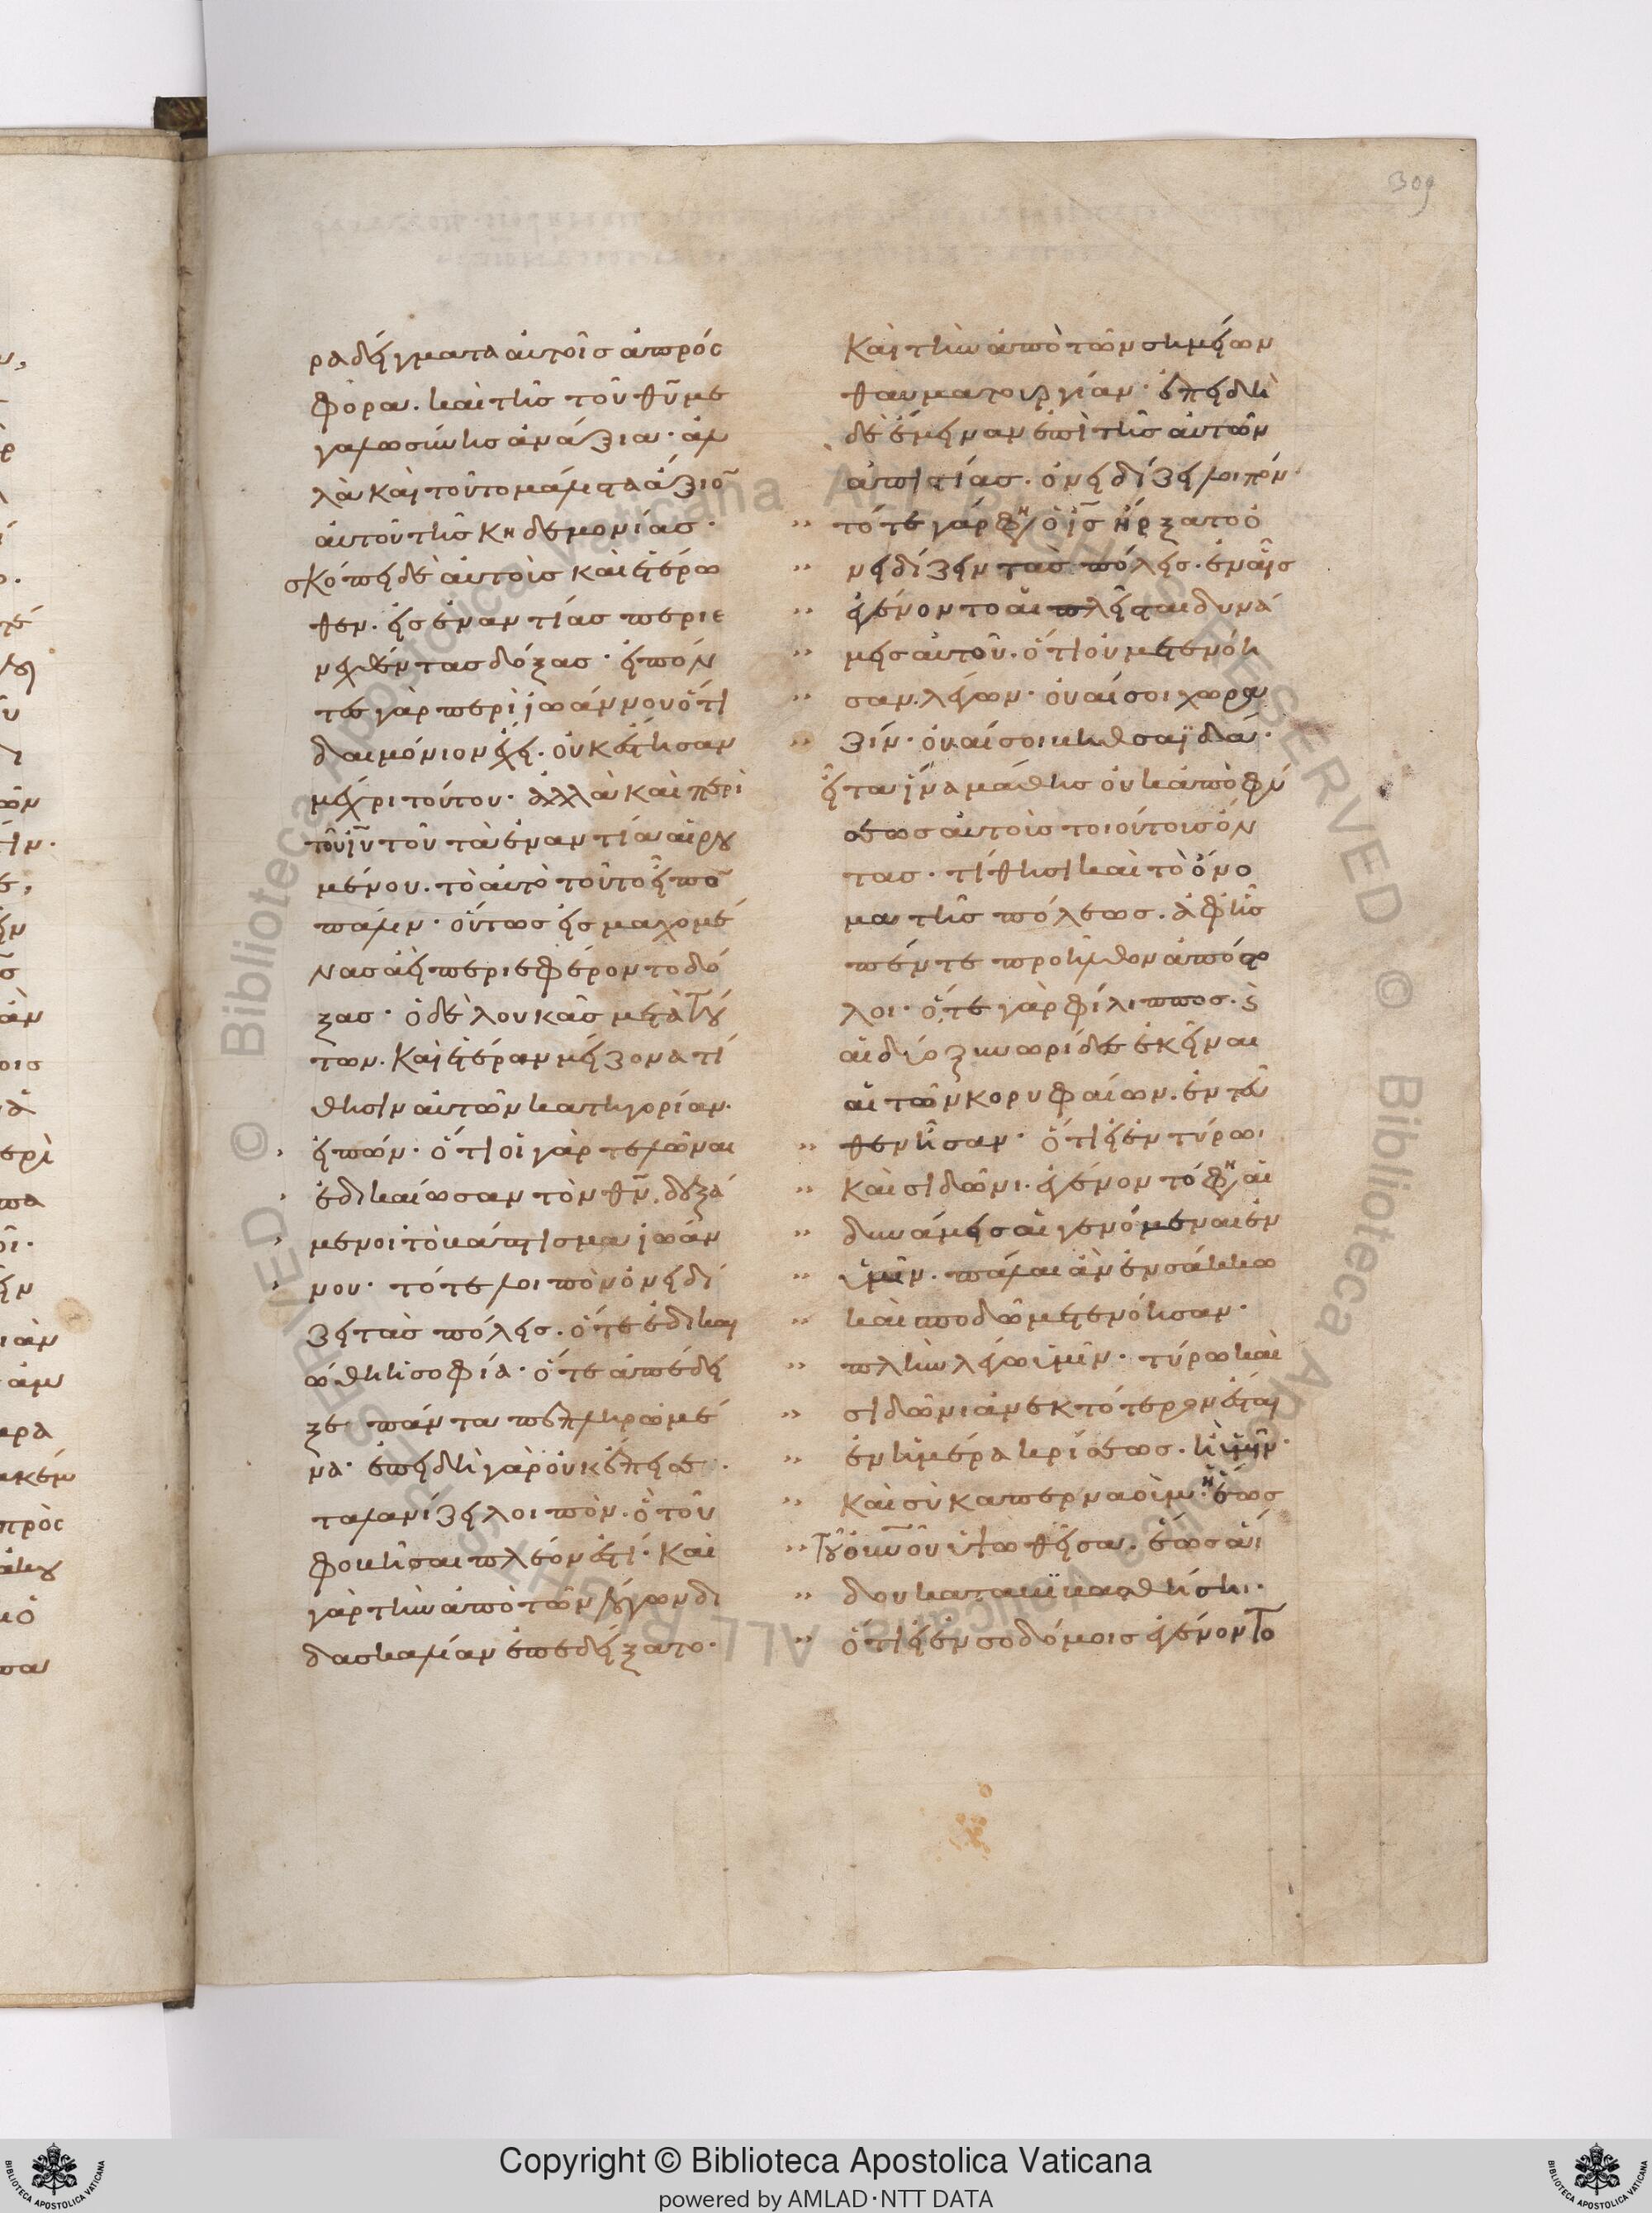 309
ραδείγματα αὐτοῖς ἀπρόσ
φορα. καὶ τῆς τοῦ θῦ με
γαλωσύνης ἀνάξια· ἀλ
λὰ καὶ τοῦτο μάλιστα ἄξιο̅
αὐτοῦ τῆς κηδεμονίας·
σκόπει δὲ αὐτοὺς καὶ ἑτέρω
θεν. εἰς ἐναντίας περιε
νεχθέντας δόξας· εἰπόν
τες γὰρ περὶ ἰωάννου ὅτι
δαιμόνιον ἔχει. οὐκ ἔστησαν
μέχρι τούτου· ἀλλὰ καὶ περὶ
τοῦ ιῦ τοῦ τὰ ἐναντία αἱρου
μένου. τὸ αὐτὸ τοῦτο εἶπο̅
πάλιν· οὕτως εἰς μαχομέ
νας ἀεὶ περιεφέροντο δό
ξας· ὁ δὲ λουκᾶς μετὰ τού
των. καὶ ἑτέραν μείζονα τί
θησιν αὐτῶν κατηγορίαν·
εἰπών· ὅτι οἱ γὰρ τελῶναι
ἐδικαίωσαν τὸν θν̅, δεξά
μενοι τὸ βάπτισμα ἰωάν
νου· τότε λοιπὸν ὀνειδί
ζει τὰς πόλεις. ὅτε ἐδικαι
ώθη ἡ σοφία· ὅτε ἀπέδει
ξε πάντα πεπληρωμέ
να· ἐπειδὴ γὰρ οὐκ ἔπεισε·
ταλανίζει λοιπὸν. ὃ τοῦ
φοβῆσαι πλέον ἐστί· καὶ
γὰρ τὴν ἀπὸ τῶν λόγων δι
δασκαλίαν ἐπεδείξατο·
καὶ τὴν ἀπὸ τῶν σημείων
θαυματουργίαν· ἐπειδὴ
δὲ ἔμειναν ἐπὶ τῆς αὐτῶν
ἀπιστίας. ὀνειδίζει λοιπόν·
τότε γάρ φη ὁ ις̅ ἤρξατο ὀ
νειδίζειν τὰς πόλεις. ἐν αἷς
ἐγένοντο αἱ πλεῖσται δυνά
μεις αὐτοῦ. ὅτι οὐ μετενόη
σαν. λέγων· οὐαί σοι χωρα
ζίν· οὐαί σοι βηθσαϊδά·
εἶτα ἵνα μάθῃς οὐκ ἀπὸ φύ
σεως αὐτοὺς τοιούτους ὄν
τας· τίθησι καὶ τὸ ὄνο
μα τῆς πόλεως. ἀφ' ἧς
πέντε προῆλθον ἀπόστο
λοι· ὅ, τε γὰρ φίλιππος. καὶ
αἱ δύο ξυνωρίδες ἐκεῖναι
αἱ τῶν κορυφαίων. ἐντεῦ
θεν ἦσαν· ὅτι εἰ ἐν τύρωι
καὶ σιδῶνι. ἐγένοντό φη αἱ
δυνάμεις αἱ γενόμεναι ἐν
ὑμῖν. πάλαι ἂν ἐν σάκκω
καὶ σποδῶ μετενόησαν·
πλὴν λέγω ὑμῖν· τύρω καὶ
σιδῶνι ἀνεκτότερον ἔσται
ἐν ἡμέρα κρίσεως. ἢ ὑμῖν·
καὶ σὺ καπερναούμ· ἡ ἕως
τοῦ οὐνοῦ ὑψωθεῖσα. ἕως ἅι
δου καταβιβασθήσηι·
ὅτι εἰ ἐν σοδόμοις ἐγένοντο
Copyright © Biblioteca Apostolica Vaticana
powered by AMLAD·NTT DATA